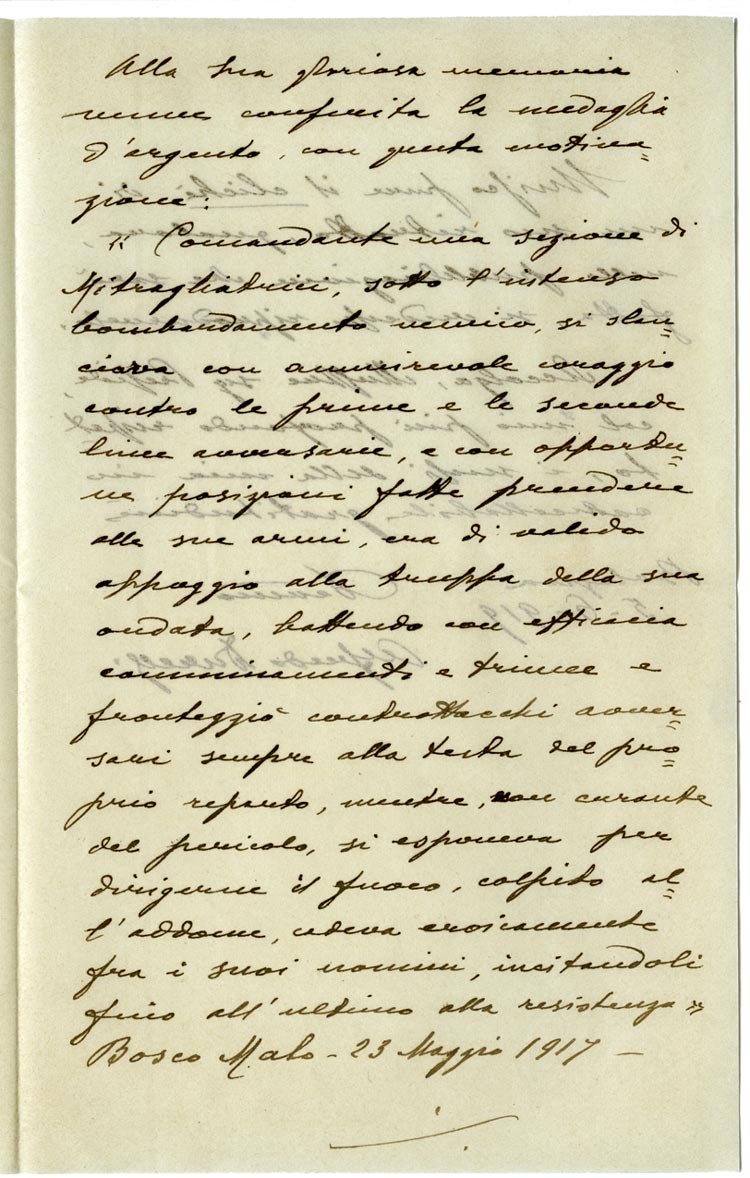 Alla Sua gloriosa memoria
venne conferita la medaglia
d'argento, con questa motiva=
zione:
"Comandante una sezione di
Mitragliatrici, sotto l'intenso
bombardamento nemico, si slan=
ciava con ammirevole coraggio
contro le prime e le seconde
linee avversarie, e con opportu=
ne posizioni fatte prendere
alle sue armi, era di valido
appoggio alla truppa della sua
ondata, battendo con efficacia
camminamenti e trincee e
fronteggiò contrattacchi avver=
sari sempre alla testa del pro=
prio reparto, mentre, non curante
del pericolo, si esponeva per
dirigerne il fuoco, colpito al=
l'addome, cadeva eroicamente
fra i suoi uomini, incitandoli
fino all'ultimo alla resistenza"
Bosco Malo - 23 Maggio 1917 -